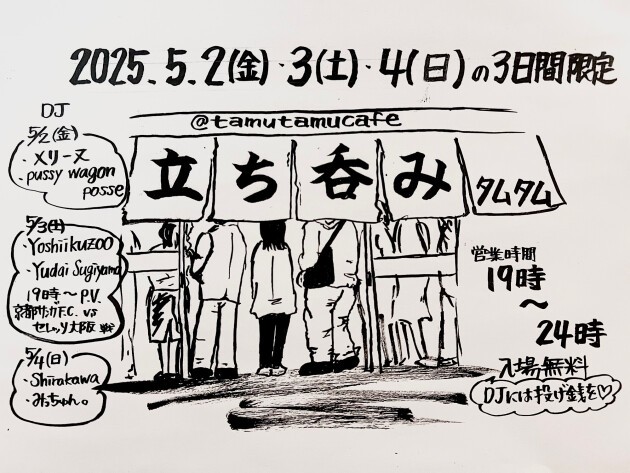 2025.5.2(金)・3(土)・4(日)の3日間限定
@tamutamucafe
立ち呑み
タムタム
DJ
5/2(金)
・メリーヌ
・pussy wagon
posse
5/3(土)
・Yoshiikuzoo
・Yudai Sugiyama
19時〜P.V.
京都サンガF.C. vs
セレッソ大阪 戦
5/4(日)
・Shirakawa
・みっちゃん。
営業時間
19時
〜
24時
入場無料
DJには投げ銭を♡